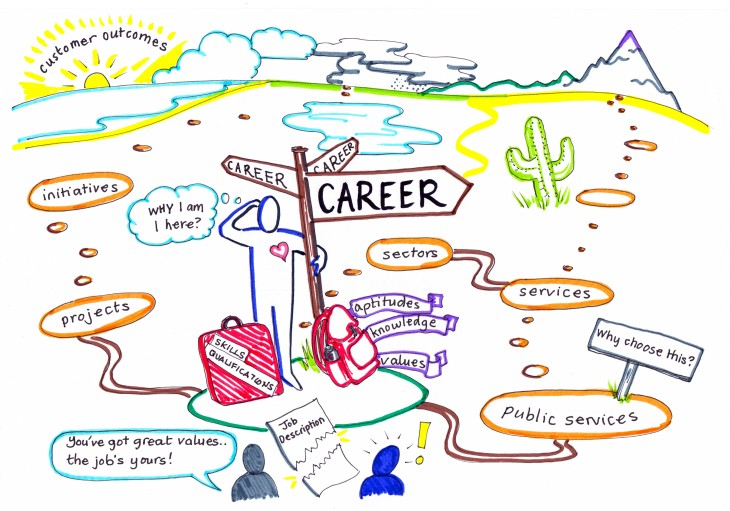 customer outcomes
CAREER
CAREER
CAREER
initiatives
WHY I am
I here?
sectors
services
aptitudes
knowledge
values
projects
SKILLS
QUALIFICATIONS
Why choose this?
Public services
Job
Description
You've got great values..
the job's yours!
!